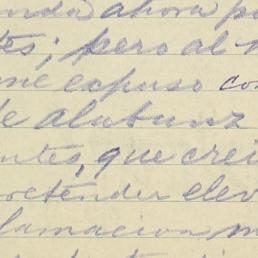 ahora p
tes; pero al
me expuso con
de alabanz
ntes, que crei
pretender elev
lamacion m